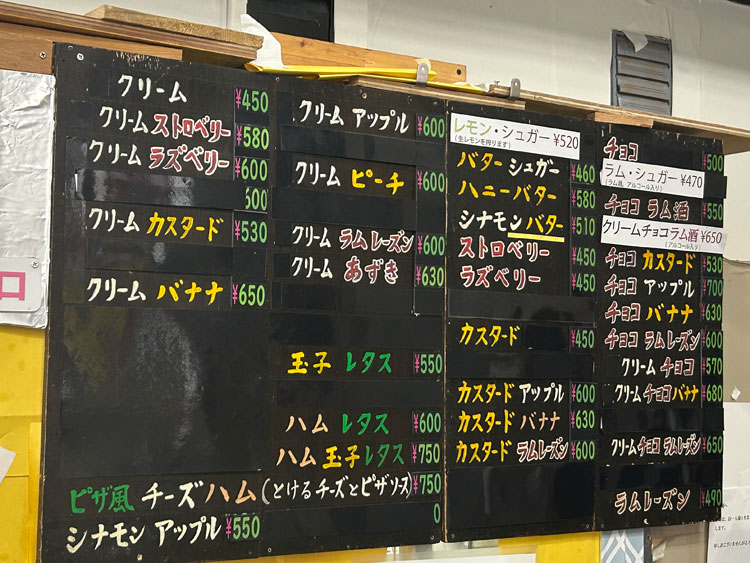 クリーム ¥450
クリームストロベリー ¥580
クリーム ラズベリー ¥600
600
クリーム カスタード ¥530
クリーム バナナ ¥650
ピザ風 チーズハム(とけるチーズとピザソース) ¥750
シナモン アップル ¥550
クリーム アップル ¥600
クリーム ピーチ ¥600
クリーム ラムレーズン ¥600
クリーム あずき ¥630
玉子 レタス ¥550
ハム レタス ¥600
ハム 玉子 レタス ¥750
0
レモン・シュガー ¥520
(生レモンを搾ります)
バター シュガー ¥460
ハニーバター ¥580
シナモンバター ¥510
ストロベリー ¥450
ラズベリー ¥450
カスタード ¥450
カスタード アップル ¥600
カスタード バナナ ¥630
カスタード ラムレーズン ¥600
チョコ ¥500
ラム・シュガー ¥470
(ラム酒、アルコール入り)
チョコ ラム酒 ¥550
クリームチョコラム酒 ¥650
(アルコール入り)
チョコ カスタード ¥530
チョコ アップル ¥700
チョコ バナナ ¥630
チョコ ラムレーズン ¥600
クリーム チョコ ¥570
クリーム チョコ バナナ ¥680
クリーム チョコ ラムレーズン ¥650
ラムレーズン ¥490
口